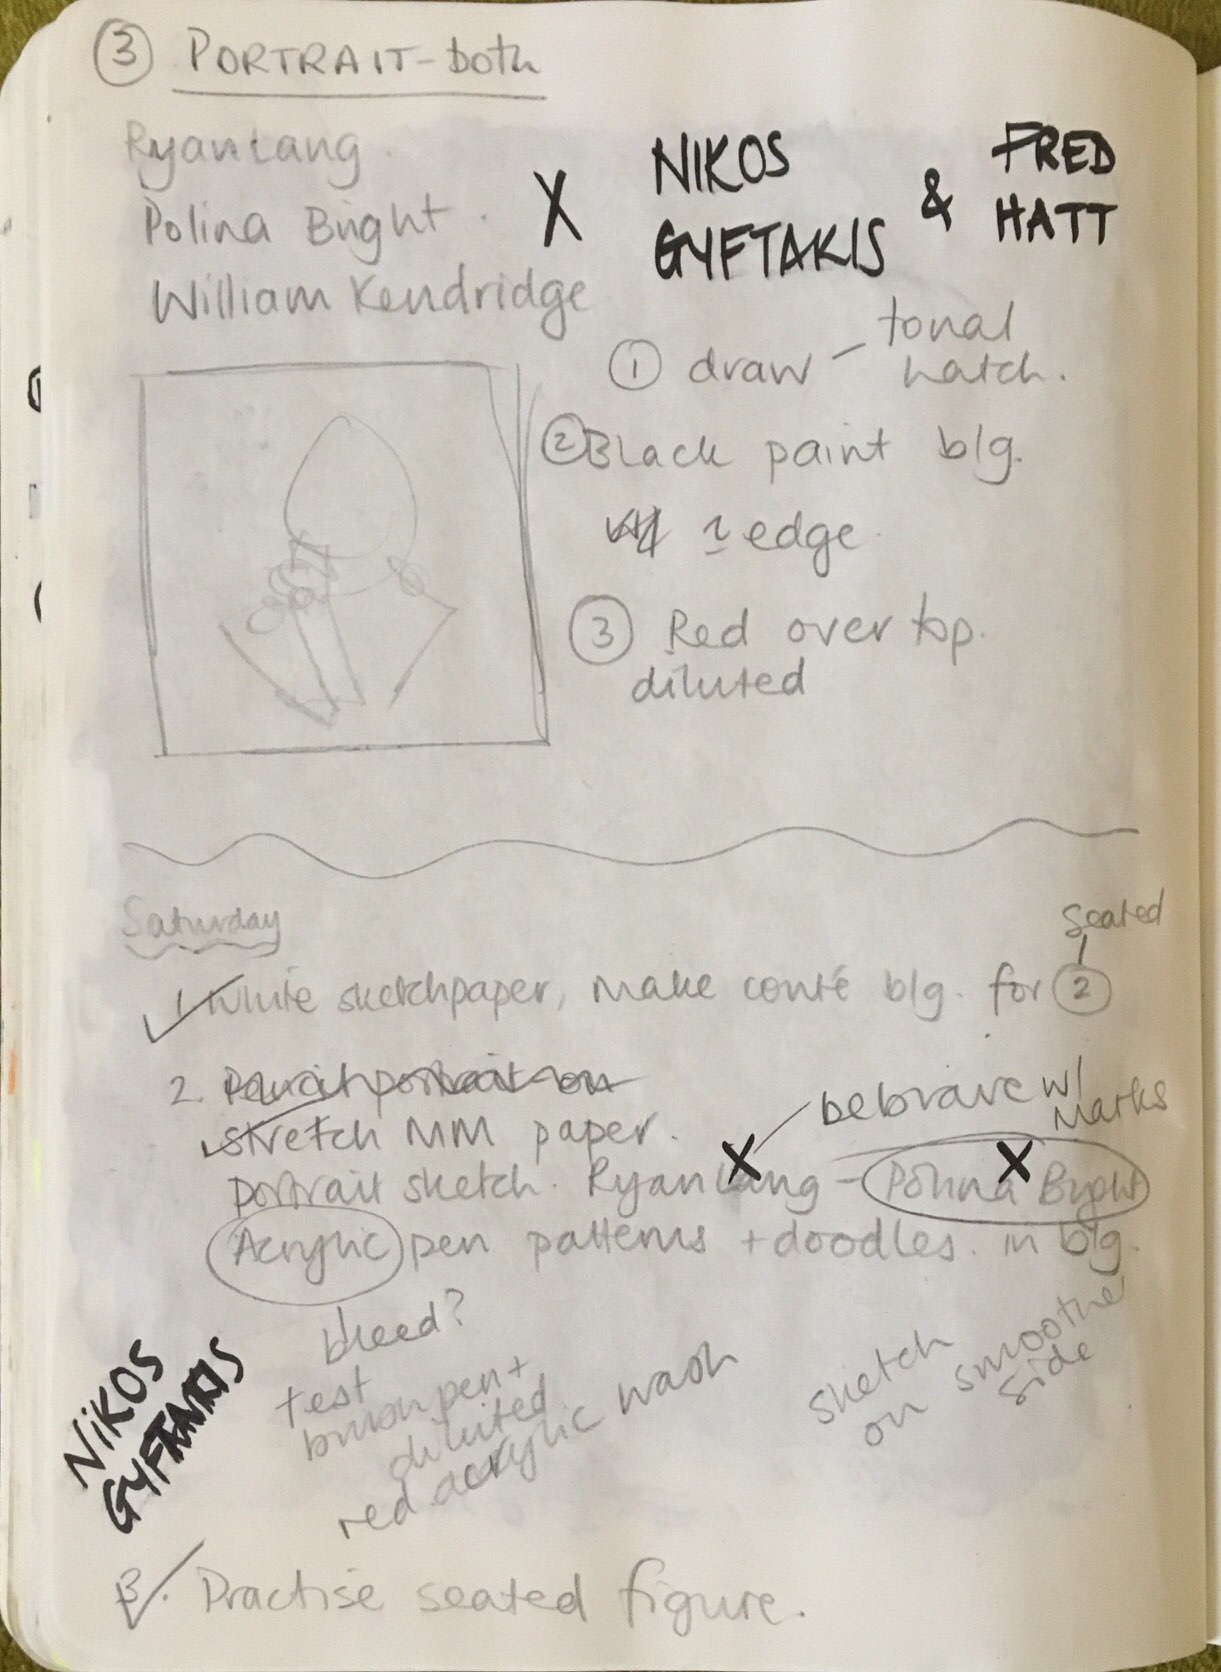 ③ PORTRAIT-both
Ryan Lang
Polina Bright
William Kendridge
X NIKOS GYFTAKIS & FRED HATT
① draw – tonal hatch.
② Black paint b/g.
edge
③ Red over top.
diluted
Saturday
seated
1. White sketchpaper, make conté b/g. for ②
2. Pencil portrait on
stretch MM paper.
be brave w/ Marks
portrait sketch. Ryan Lang – Polina Bright
X X
Acrylic pen patterns + doodles. in b/g.
bleed?
test
brush pen +
diluted
red acrylic wash
sketch on smoothe side
NIKOS
GYFTAKIS
3. Practise seated figure.